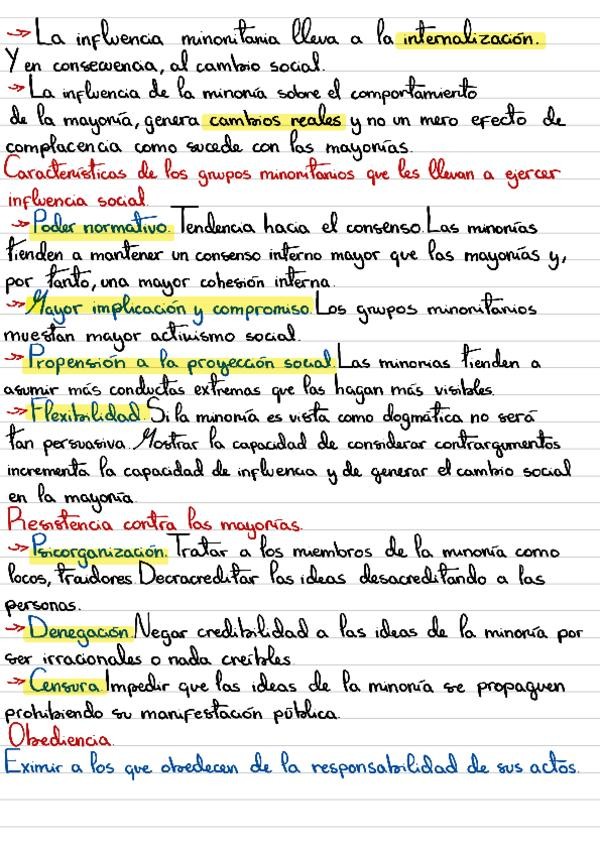 → La influencia minoritaria lleva a la internalización.
Y en consecuencia, al cambio social.
→ La influencia de la minoría sobre el comportamiento
de la mayoría, genera cambios reales y no un mero efecto de
complacencia como sucede con las mayorías.
Características de los grupos minoritarios que les llevan a ejercer
influencia social.
→ Poder normativo. Tendencia hacia el consenso. Las minorías
tienden a mantener un consenso interno mayor que las mayorías y,
por tanto, una mayor cohesión interna.
→ Mayor implicación y compromiso. Los grupos minoritarios
muestan mayor activismo social.
→ Propensión a la proyección social. Las minorias tienden a
asumir más conductas extremas que las hagan más visibles.
→ Flexibilidad. Si la minoría es vista como dogmática no será
tan persuasiva. Mostrar la capacidad de considerar contrargumentos
incrementa la capacidad de influencia y de generar el cambio social
en la mayoría.
Resistencia contra las mayorías.
→ Psicorganización. Tratar a los miembros de la minoría como
locos, traidores. Decracreditar las ideas desacreditando a las
personas.
→ Denegación. Negar credibilidad a las ideas de la minoría por
ser irracionales o nada creíbles.
→ Censura. Impedir que las ideas de la minoría se propaguen
prohibiendo su manifestación pública.
Obediencia.
Eximir a los que obedecen de la responsabilidad de sus actos.